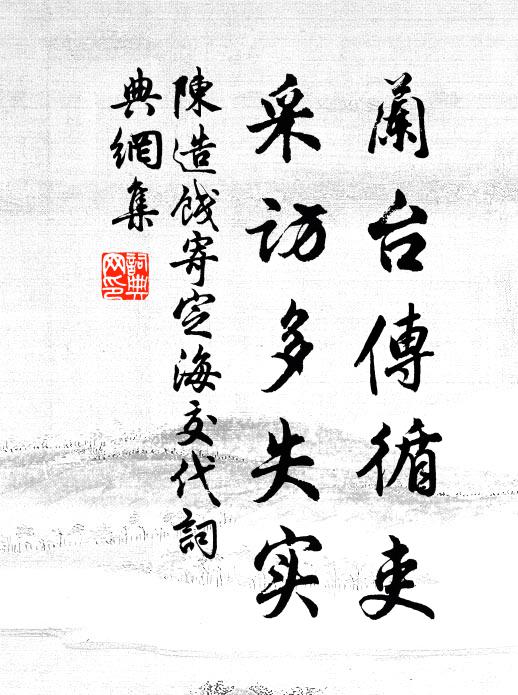 蘭台傳循吏
采访多失实
陳造餞寄定海交代詞
典網集
詞典网印